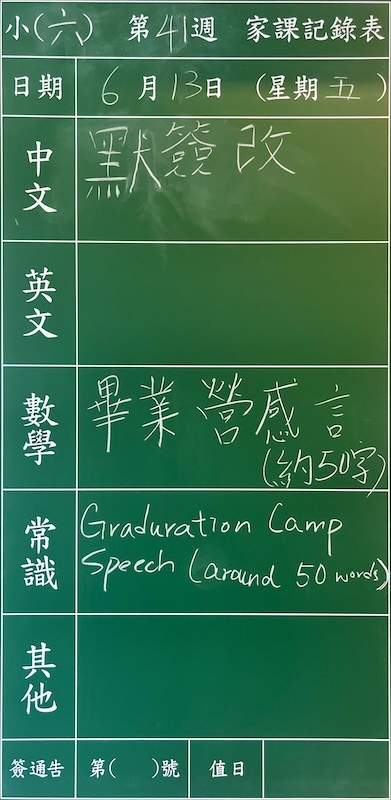 小(六) 第41週 家課記錄表
日期 6月13日 (星期五)
中文 默簽改
英文
數學 畢業營感言
(約50字)
常識 Graduration Camp
Speech (around 50 words)
其他
簽通告 第( )號 值日